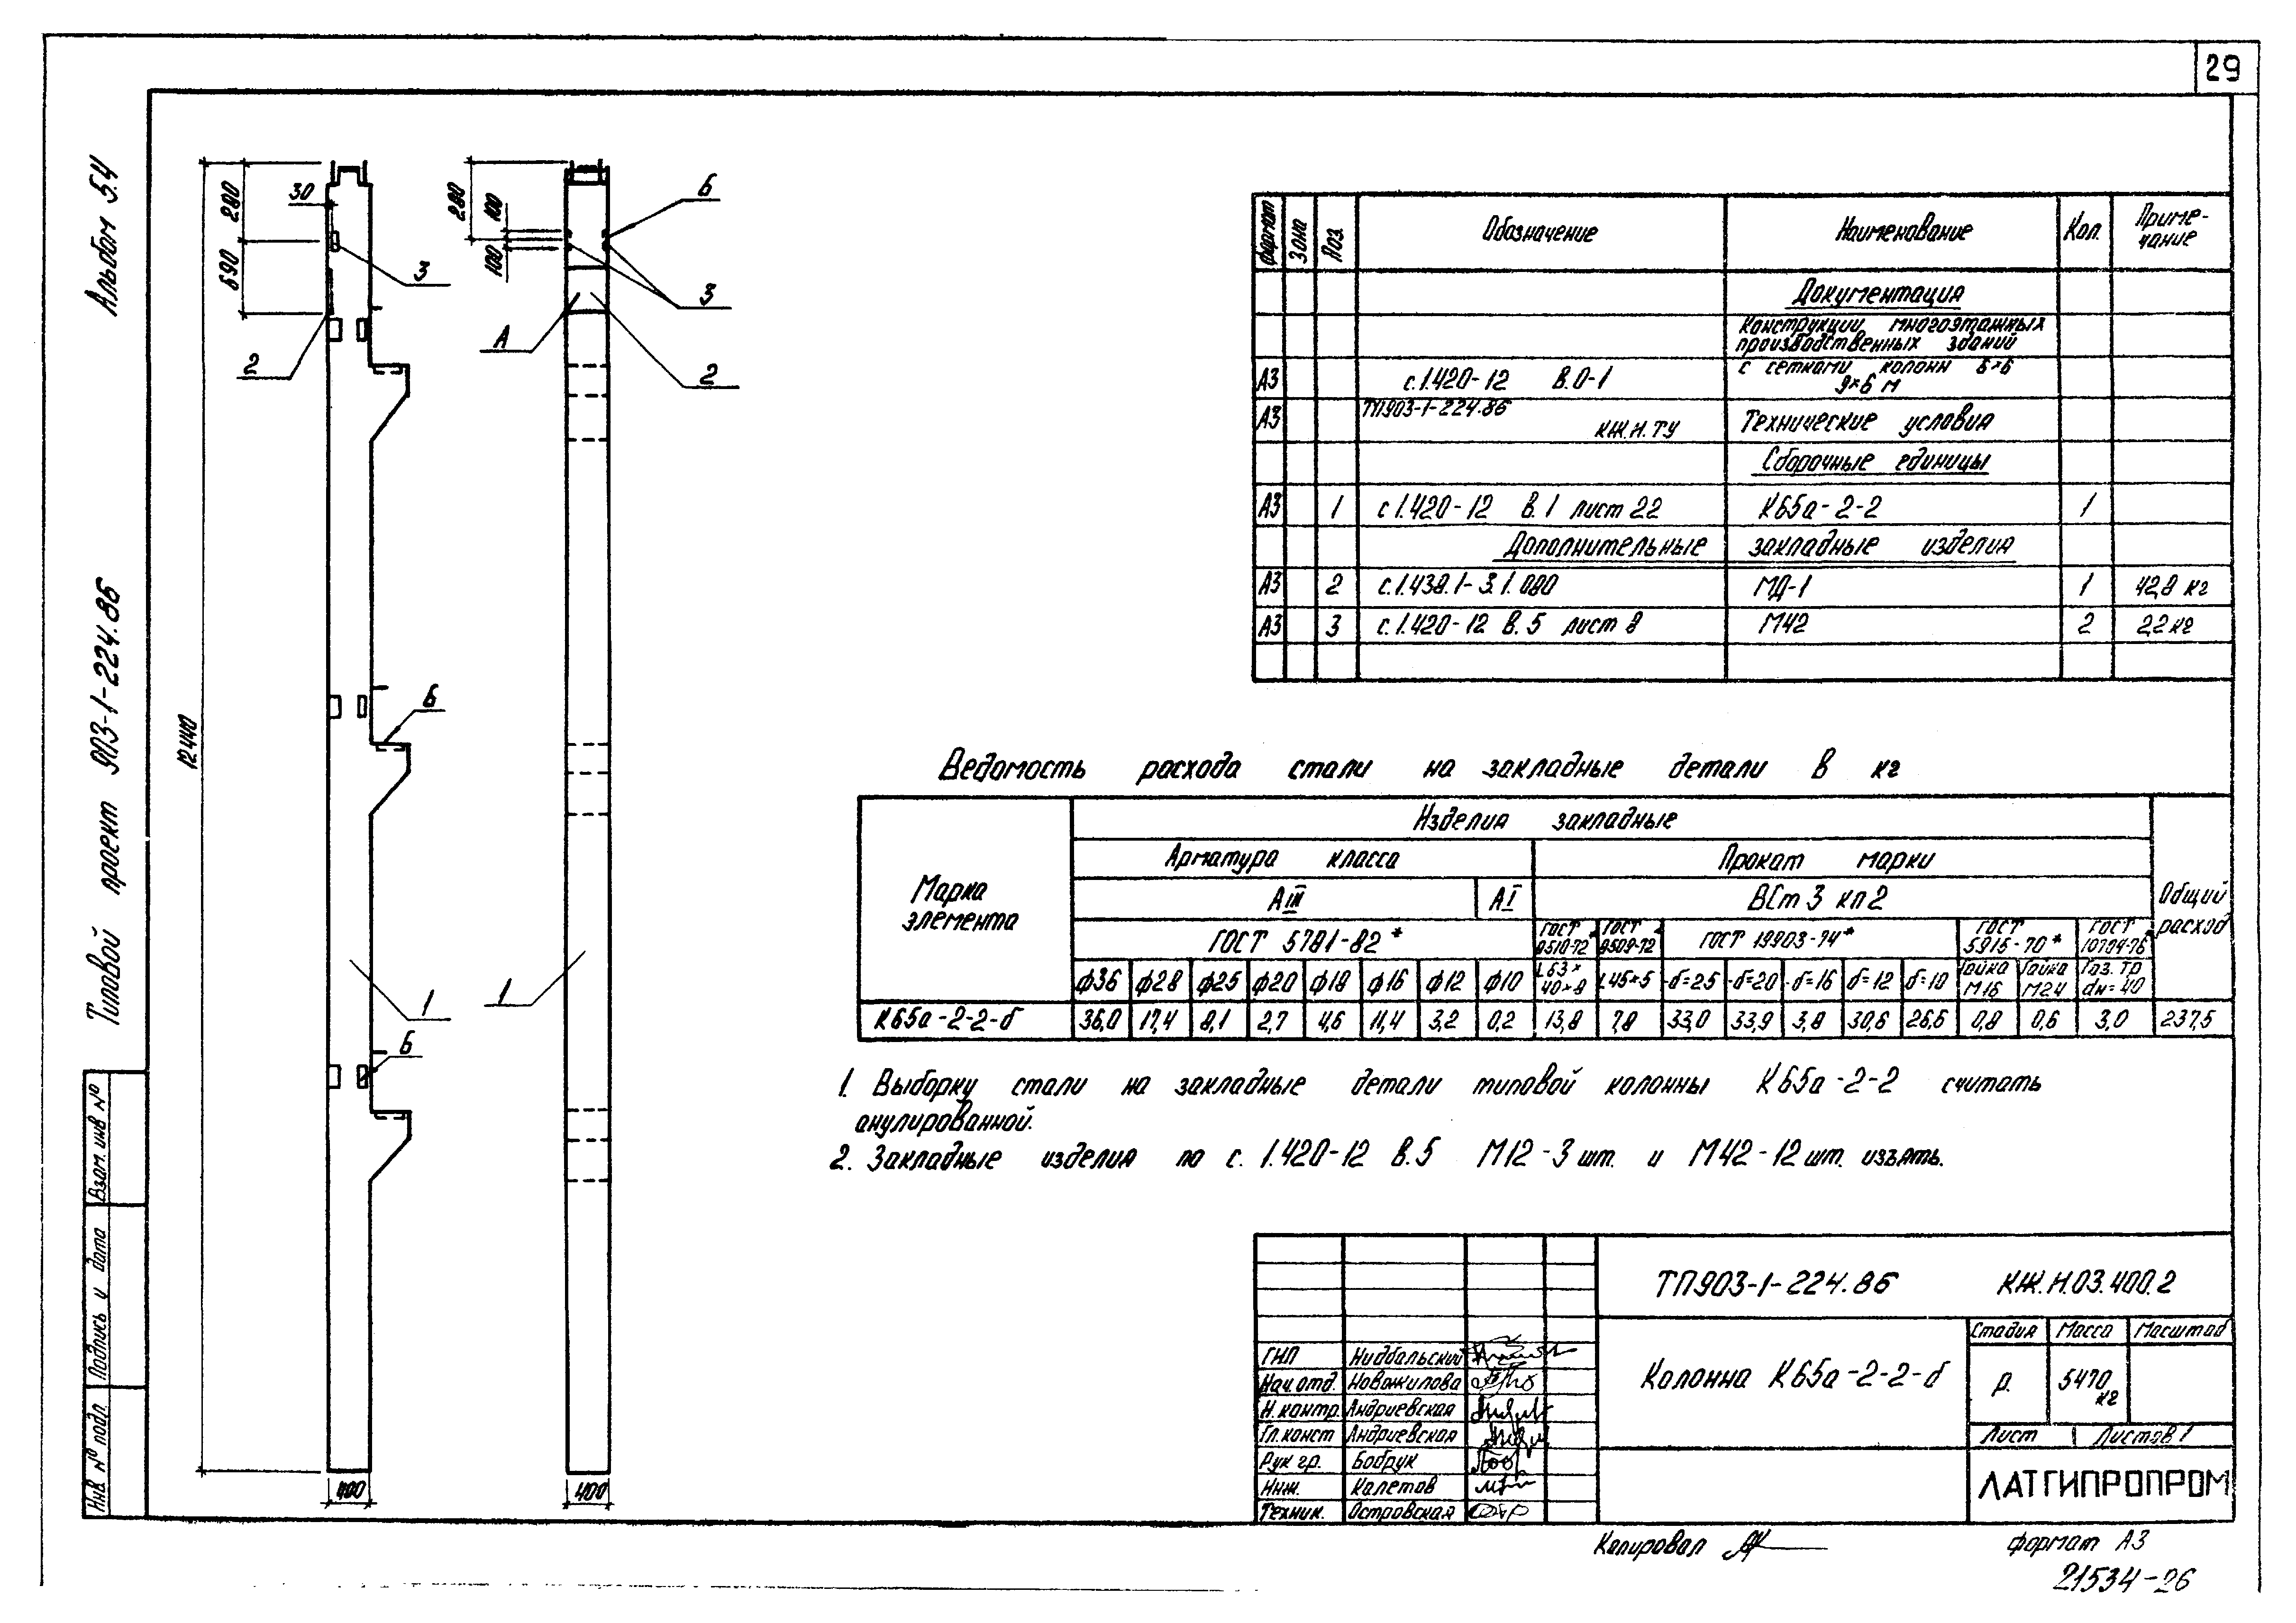 29
Альбом 5.4
Типовой проект 903-1-224.86
Взам. инв №
Подпись и дата
Инв № подл.
12440
280
690
30
3
2
Б
1
Б
400
280
100
100
Б
3
А
2
1
400
Формат Зона Поз. Обозначение Наименование Кол. Приме-
чание
Документация
Конструкции многоэтажных
производственных зданий
А3 с.1.420-12 в.0-1 с сетками колонн 6×6
9×6 м
А3 ТП903-1-224.86 КЖ.И.ТУ Технические условия
Сборочные единицы
А3 1 с 1.420-12 в.1 лист 22 К65а-2-2 1
Дополнительные закладные изделия
А3 2 с.1.438.1-3.1.080 МД-1 1 42,8 кг
А3 3 с.1.420-12 в.5 лист 8 М42 2 2,2 кг
Ведомость расхода стали на закладные детали в кг
Марка
элемента
Изделия закладные
Общий
расход
Арматура класса Прокат марки
АIII АI ВСт 3 кп2
ГОСТ 5781-82* ГОСТ 8510-72* ГОСТ 8509-72* ГОСТ 19903-74* ГОСТ 5915-70* ГОСТ 10704-76*
ф36 ф28 ф25 ф20 ф18 ф16 ф12 ф10 L63×40×8 L45×5 -δ=25 -δ=20 -δ=16 δ=12 δ=10 Гайка М16 Гайка М24 Газ. тр dн=40
К65а-2-2-б 36,0 17,4 8,1 2,7 4,6 11,4 3,2 0,2 13,8 7,8 33,0 33,9 3,8 30,6 26,6 0,8 0,6 3,0 237,5
1. Выборку стали на закладные детали типовой колонны К65а-2-2 считать
анулированной.
2. Закладные изделия по с. 1.420-12 в.5 М12-3 шт. и М42-12 шт. изъять.
ТП903-1-224.86 КЖ.И.03.400.2
Колонна К65а-2-2-б
Стадия Масса Масштаб
Р. 5470
кг
Лист Листов 1
ЛАТГИПРОПРОМ
ГИП Нидбальский
Нач.отд. Новожилова
Н.контр. Андриевская
Гл.конст Андриевская
Рук гр. Бобрук
Инж. Калетов
Техник. Островская
Копировал
формат А3
21534-26